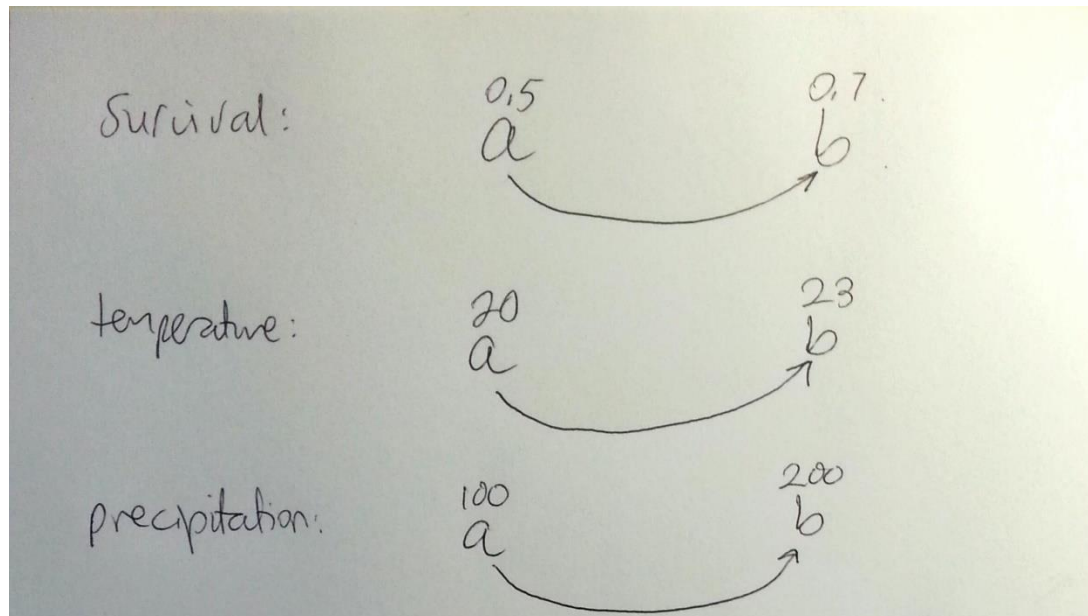 Survival: 0,5 0,7
a b
temperature: 20 23
a b
precipitation: 100 200
a b